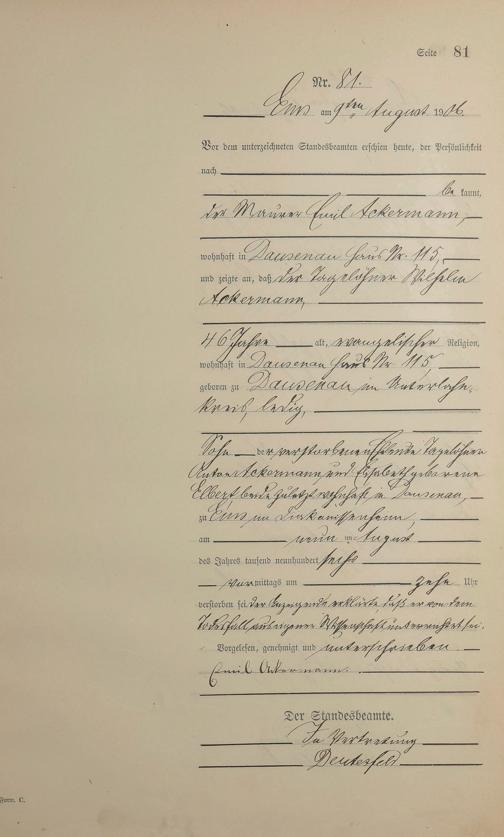 Seite 81
Nr. 81.
Ems am 9ten August 1906.
Vor dem unterzeichneten Standesbeamten erschien heute, der Persönlichkeit
nach
be kannt,
der Maurer Emil Ackermann,
wohnhaft in Dausenau Haus Nr. 115,
und zeigte an, daß der Tagelöhner Wilhelm
Ackermann,
46 Jahre alt, evangelischer Religion,
wohnhaft in Dausenau Haus Nr. 115,
geboren zu Dausenau im Unterlahn-
kreis, ledig,
Sohn der verstorbenen Eheleute Tagelöhner
Anton Ackermann und Elisabeth geborene
Elbert beide zuletzt wohnhaft in Dausenau,
zu Ems, im Diakonissenheim,
am neun ten August
des Jahres tausend neunhundert sechs
vor mittags um zehn Uhr
verstorben sei. Der Anzeigende erklärte daß er von dem
Todesfall aus eigener Wissenschaft unterrichtet sei.
Vorgelesen, genehmigt und unterschrieben
Emil Ackermann.
Der Standesbeamte.
In Vertretung
Form. C.